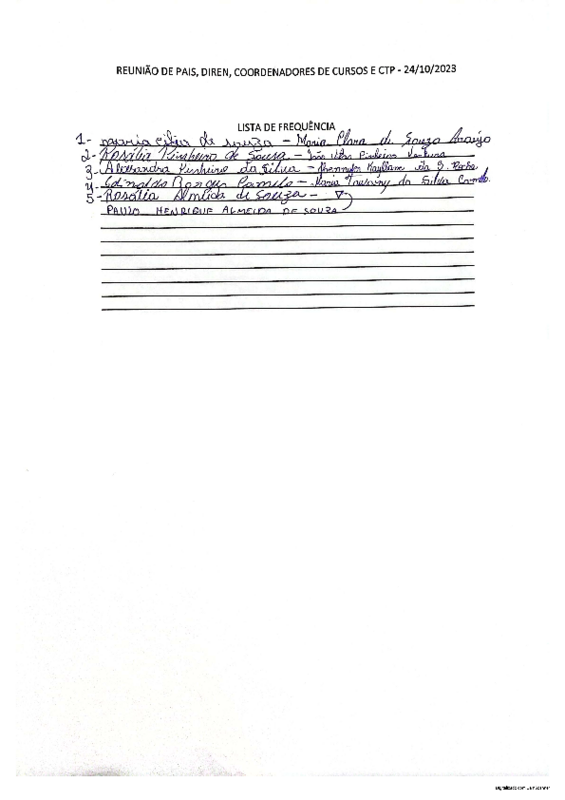 REUNIÃO DE PAIS, DIREN, COORDENADORES DE CURSOS E CTP - 24/10/2023
LISTA DE FREQUÊNCIA
1- maria de souza - Maria Clara de Souza Araújo
2- Rosália Pinheiro de Sousa - João Pinheiro
3- Alessandra Pinheiro da Silva - da S. Rocha
4- - Maria da Silva
5- Rosália Almeida de Souza -
PAULO HENRIQUE ALMEIDA DE SOUZA